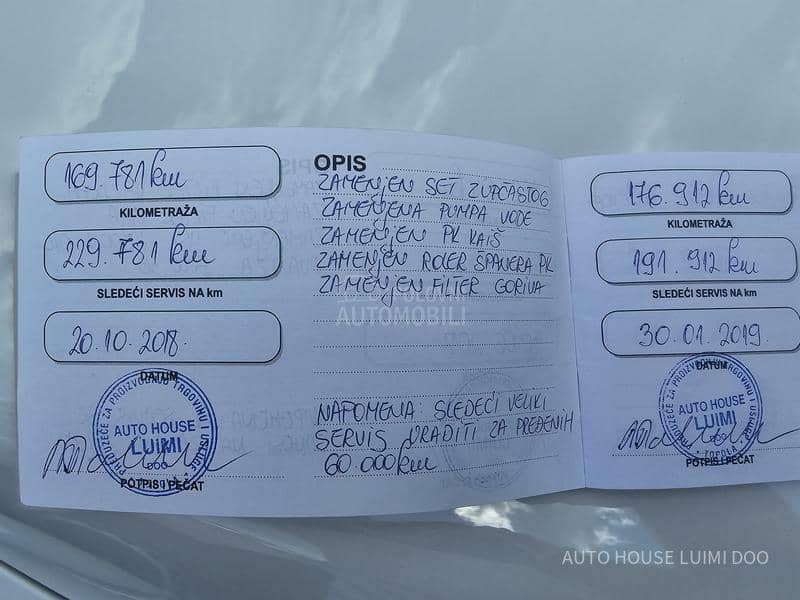 169.781 km
KILOMETRAŽA
229.781 km
SLEDEĆI SERVIS NA km
20.10.2018.
DATUM
PREDUZEĆE ZA PROIZVODNJU TRGOVINU I USLUGE
AUTO HOUSE
LUIMI
DOO
POTPIS I PEČAT
OPIS
ZAMENJEN SET ZUPČASTOG
ZAMENJENA PUMPA VODE
ZAMENJEN PK KAIŠ
ZAMENJEN ROLER ŠPANERA PK
ZAMENJEN FILTER GORIVA
POLOVNI
AUTOMOBILI
NAPOMENA: SLEDEĆI VELIKI
SERVIS URADITI ZA PREĐENIH
60 000 km
176.912 km
KILOMETRAŽA
191.912 km
SLEDEĆI SERVIS NA km
30.01.2019.
DATUM
PREDUZEĆE ZA PROIZVODNJU TRGOVINU I USLUGE
AUTO HOUSE
LUIMI
DOO
TOPOLA
POTPIS I PEČAT
AUTO HOUSE LUIMI DOO